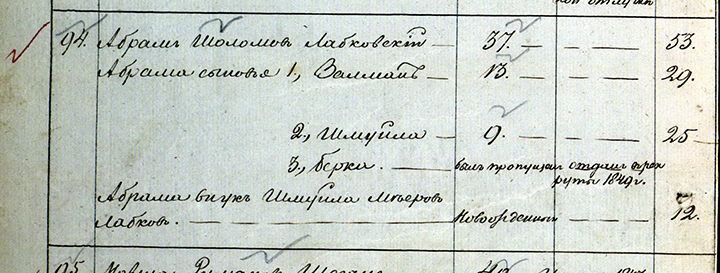 94. Абрамъ Шоломовъ Лабковскій — 37. — — 53.
Абрама сыновья 1, Залманъ — 13. — — 29.
2, Шмуйла — 9. — — 25
3, Берка. — былъ пропущенъ отданъ въ рек
руты 1849 г.
Абрама внукъ Шмуйла Мееровъ
Лабков. — — — новорожденный — 12.
95.